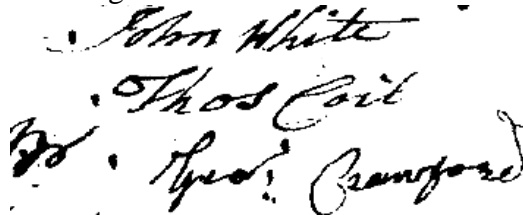 John White
Thos Coit
Geo. Crawford